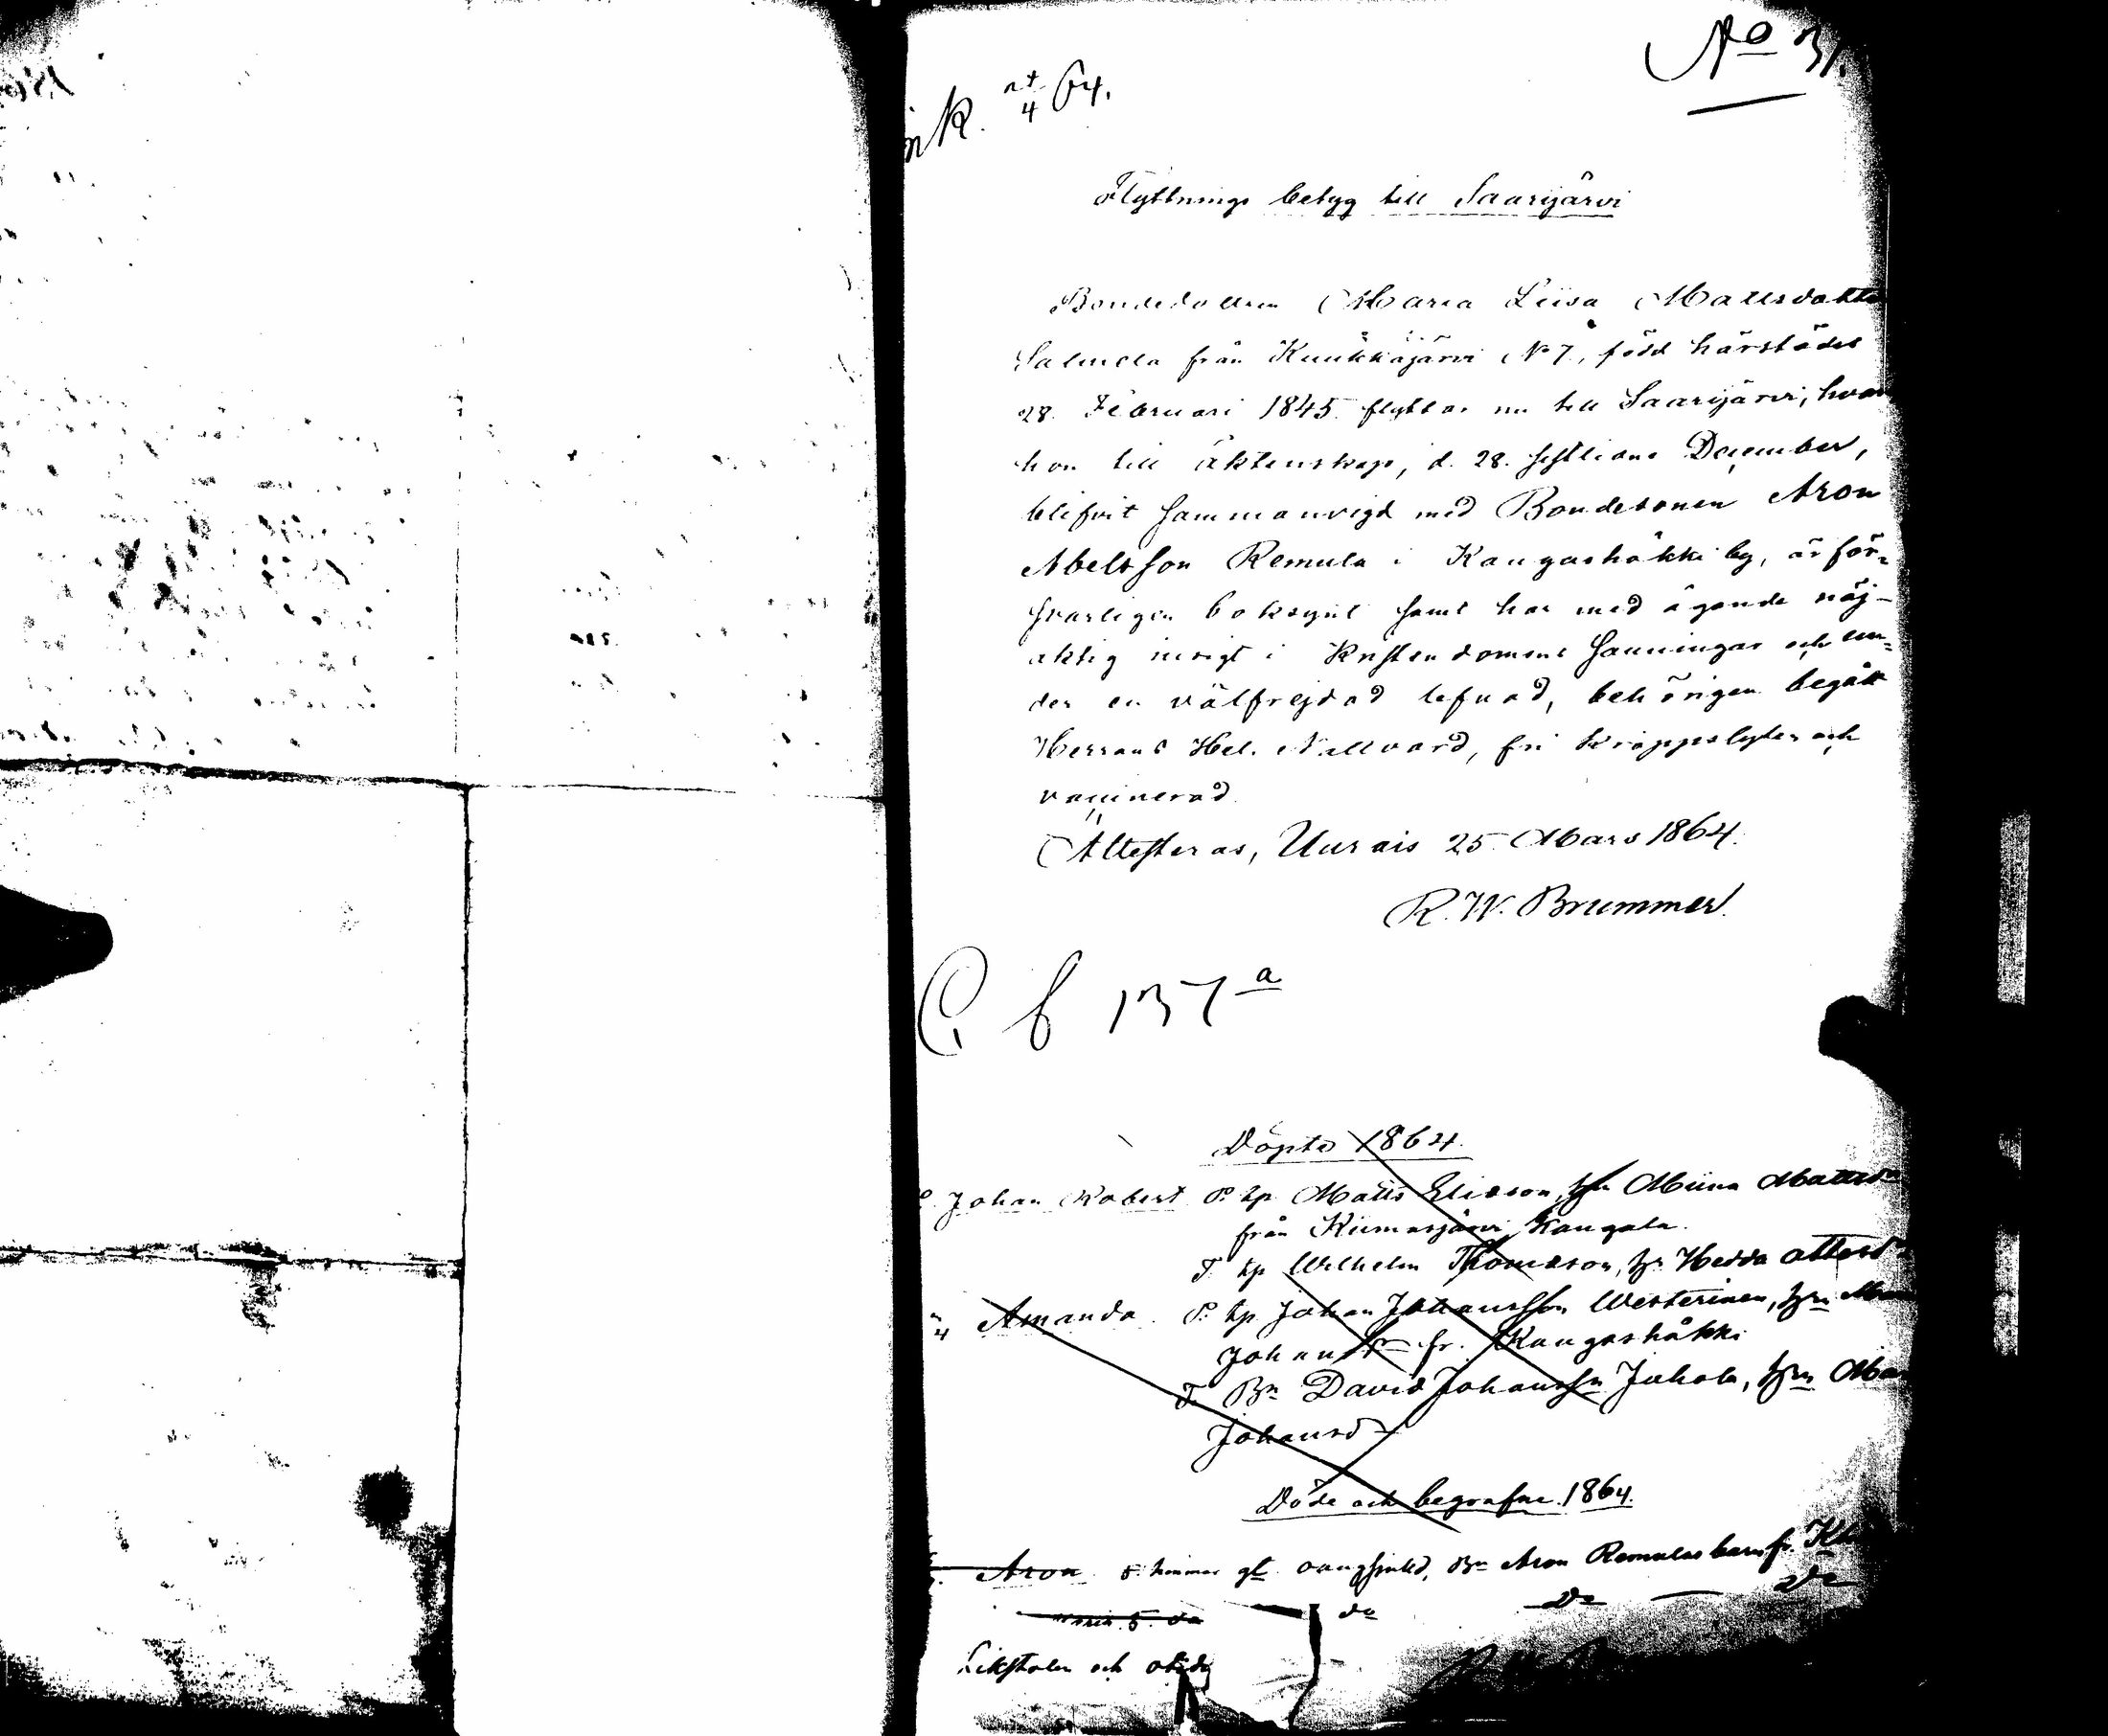 ink. 4 64.
No 31.
Flyttnings betyg till Saarijärvi
Bondedottren Maria Liisa Mattsdotte
Salmela från Kuukkajärvi No 7, född härstädes
28. Februari 1845 flyttar nu till Saarijärvi, hvar
hon till äktenskap, d. 28. sistlidne December,
blifvit sammanvigd med Bondesonen Aron
Abelsson Remula i Kangashäkki by, är för-
svarligen boksynt samt har med ägande nöj-
aktig insigt i Kristendomens sanningar och un-
der en välfrejdad lefnad, behörigen begått
Herrans Hel. Nattvard, fri kroppslyten och
vaccinerad.
Attesteras, Uurais 25 Mars 1864.
R. W. Brummer.
C. f 137 a
Döpte 1864.
Johan Robert P. hp Matts Eliasson, Miina Mattsd
från Kiimasjärvi Kangala.
F. hp Wilhelm Thomasson, Hedda
4 Amanda P. hp Johan Johansson Westerinen,
Johansd fr. Kangashäkki
F. Bn David Johanss Juhola,
Johansd
Döde och begrafne 1864.
Aron 5 timmar gl. Bn Aron Remulas barn fr.
5 do do Do Do
och